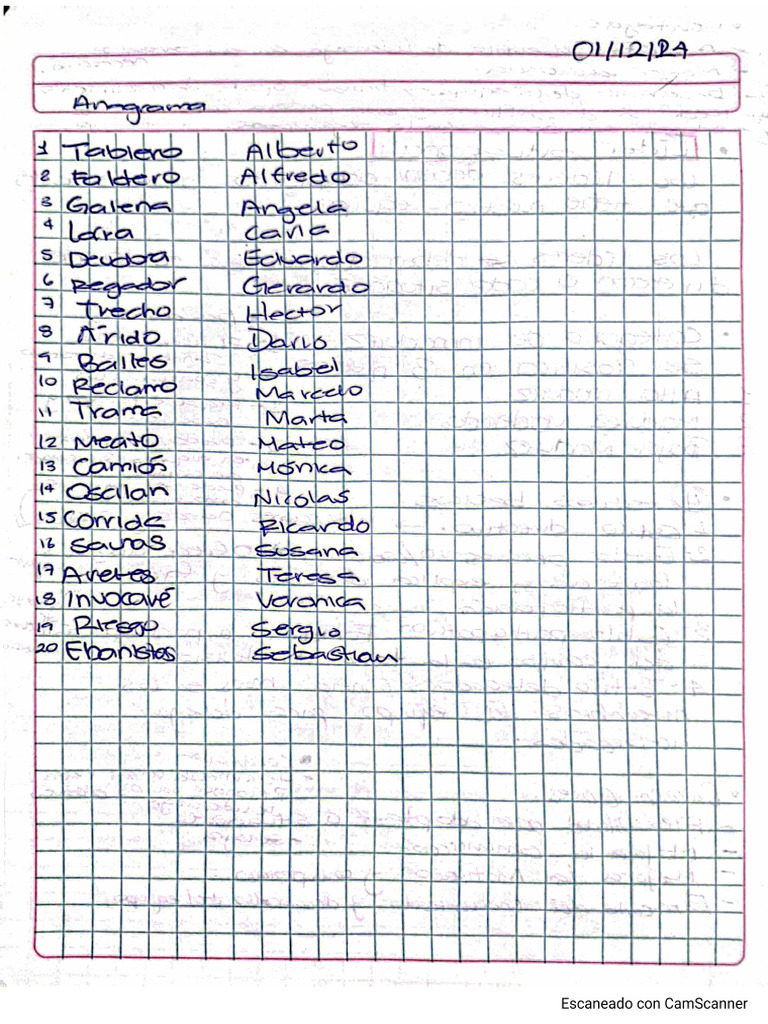 01/12/24
Anagrama
1 Tablero Alberto
2 Faldero Alfredo
3 Galena Angela
4 Lacra Carla
5 Deudora Eduardo
6 Regador Gerardo
7 Trecho Hector
8 Árido Dario
9 Bailes Isabel
10 Reclamo Marcelo
11 Trama Marta
12 Meato Mateo
13 Camiós Mónica
14 Oscilan Nicolas
15 Corrida Ricardo
16 Sauras Susana
17 Aretes Teresa
18 Invocaré Veronica
19 Riesgo Sergio
20 Ebanistas Sebastian
Escaneado con CamScanner